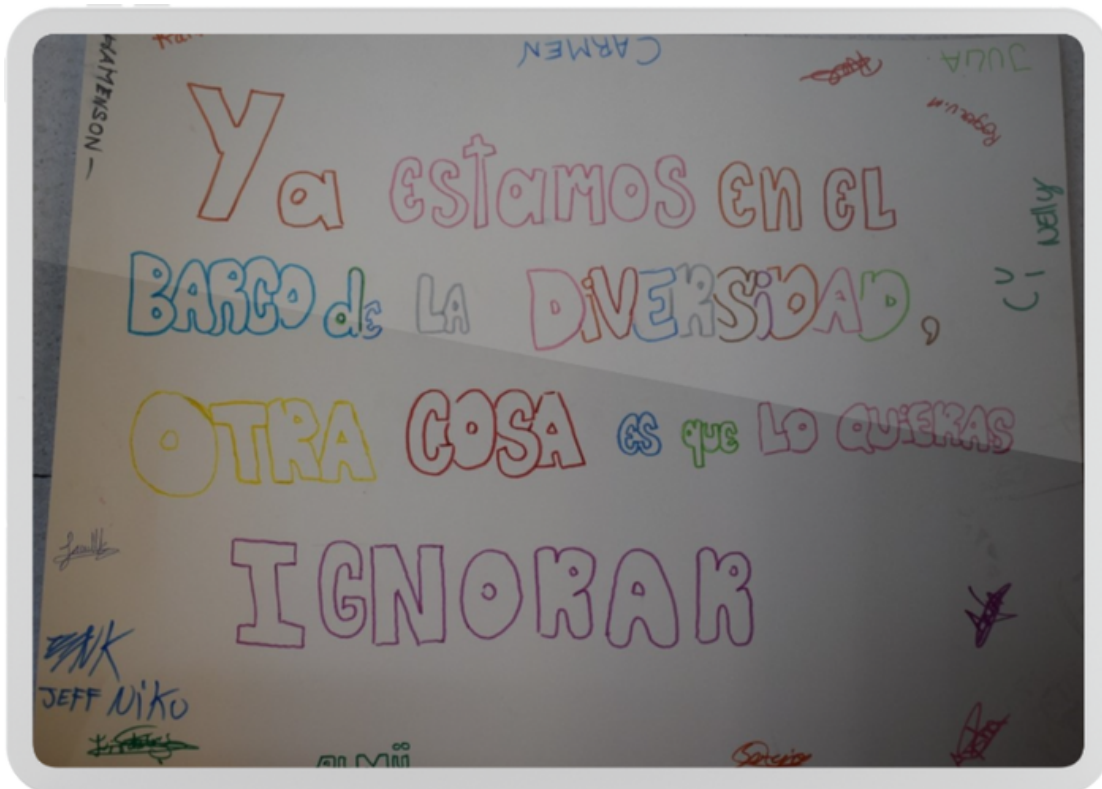 HAMENSON -
CARMEN
JULIA.
Nelly
Ya estamos en el
BARCO de LA DiVERSiDAD,
OTRA COSA es que LO QUiERAS
IGNORAR
JEFF NiKO